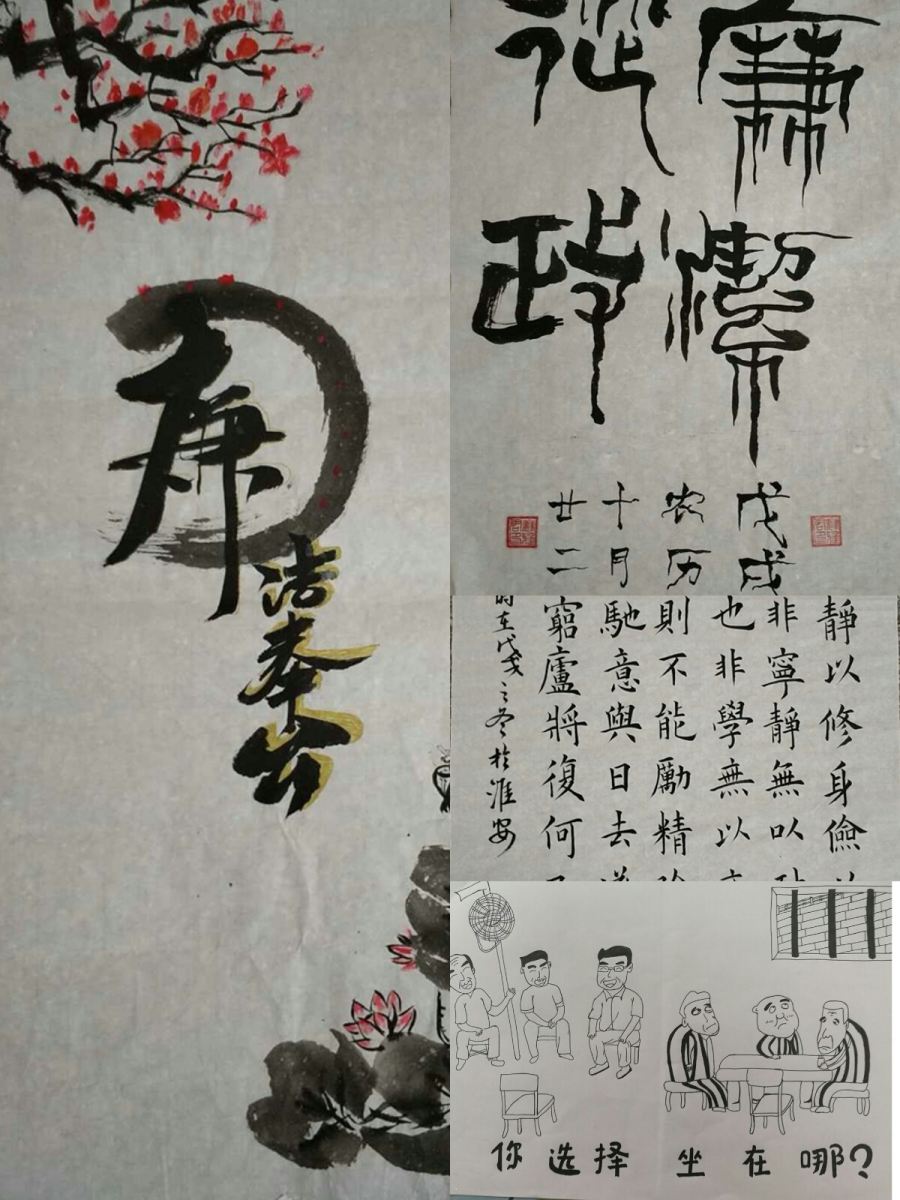 廉
洁奉公
廉潔
從政
戊戌
农历
十月
廿二
靜以修身儉
非寧靜無以
也非學無以
則不能勵精
馳意與日去
窮廬將復何
时在戊戌之冬於淮安
你选择 坐在哪?